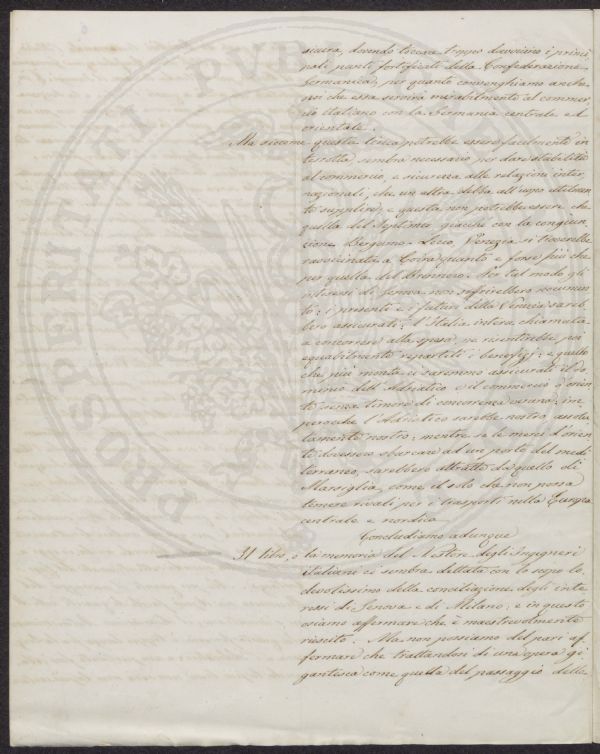 sicura, dovendo toccare troppo davvicino i princi
pali punti fortificati della Confederazione
Germanica; per quanto convenghiamo anche
noi che essa servirà mirabilmente al commer
cio italiano con la Germania centrale ed
orientale.
Ma siccome questa linea potrebbe essere facilmente in
terrotta, sembra necessario per dare stabilità
al commercio, e sicurezza alle relazioni inter
nazionali, che un altra debba all'uopo utilmen
te supplire, e questa non potrebbe essere che
quella del Septimer giacchè con la congiun
zione Bergamo-Lecco, Venezia si troverebbe
ravvicinata a Coira quanto e forse più che
per quella del Brennero. Per tal modo gli
interessi di Genova non soffrirebbero nocumen
to: i presenti e i futuri della Venezia sareb
bero assicurati: l'Italia intera chiamata
a concorrere alla spesa, ne risentirebbe più
equabilmente repartiti i benefizi: e quello
che più monta ci saremmo assicurati il do
minio dell'Adriatico e il commercio d'orien
te senza timore di concorrenza veruna; im
perocchè l'Adriatico sarebbe nostro, assolu
tamente nostro: mentre se le merci d'orien
te dovessero sbarcare ad un porto del medi
terraneo, sarebbero attratte da quello di
Marsiglia, come il solo che non possa
temere rivali per i trasporti nella Europa
centrale e nordica.
Concludiamo adunque
Il libro, o la memoria del Nestore degli Ingegneri
italiani ci sembra dettata con lo scopo lo
devolissimo della conciliazione degli inte
ressi di Genova e di Milano; e in questo
osiamo affermare che è maestrevolmente
riescito. Ma non possiamo del pari af
fermare che trattandosi di una opera gi
gantesca come quella del passaggio delle
PROSPERITATI PVBLICAE